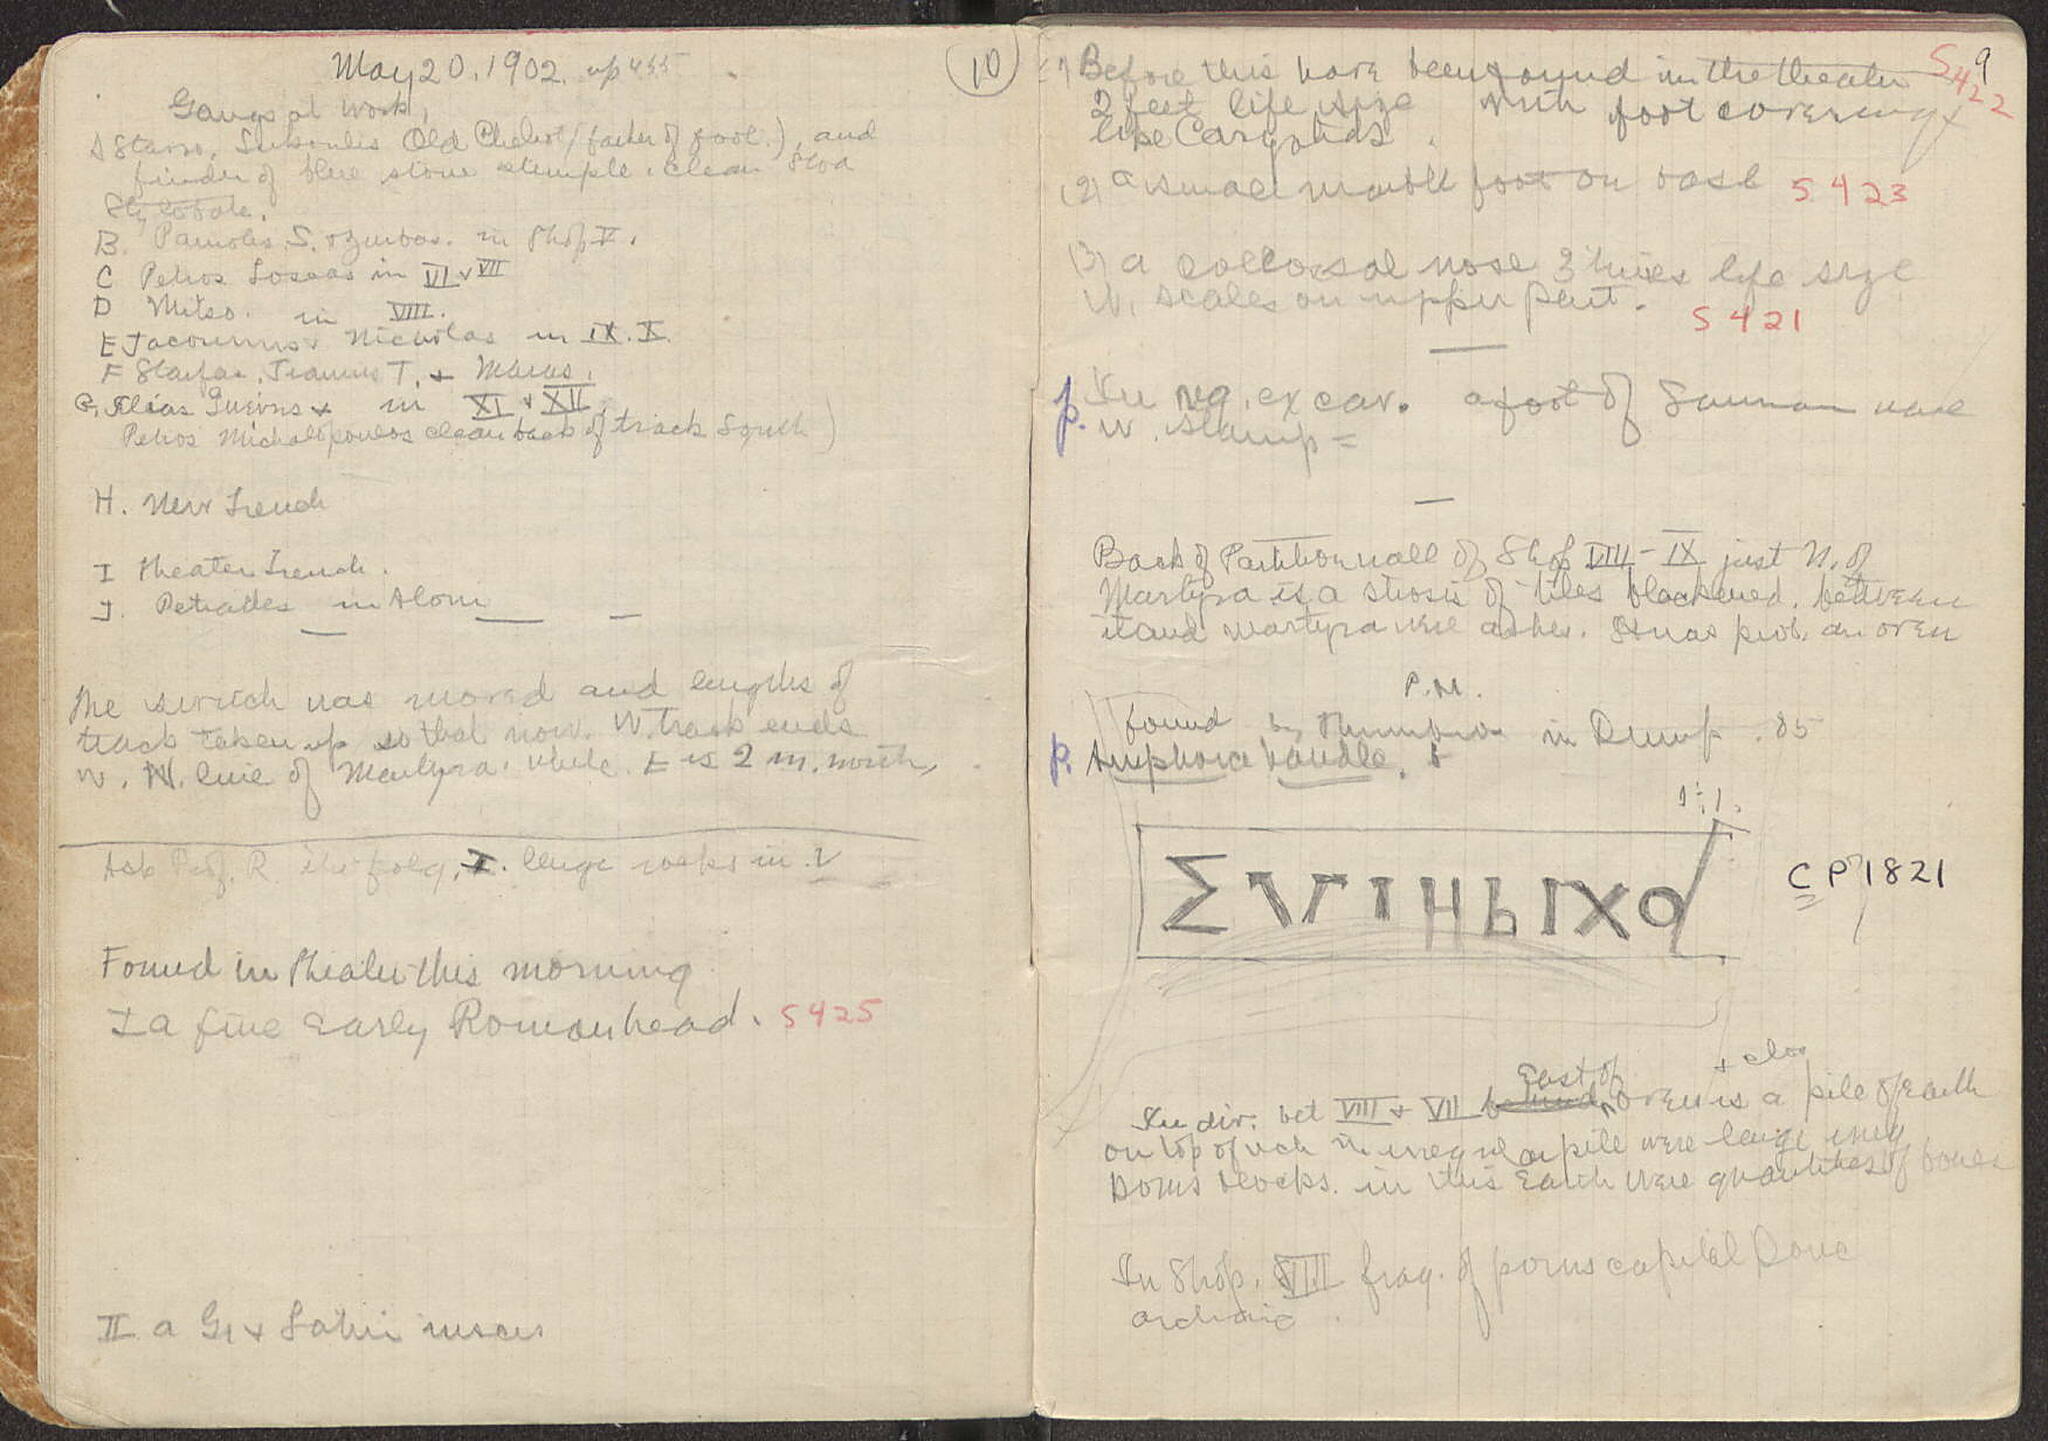 May 20, 1902. up 455
10
Gangs at work,
A Stavro, Old (father of fool.), and
finder of blue stone stemple. clean Stoa
Stylobate.
B. in Shop V.
C Petros in VI + VII
D Mitso. in VIII.
E Nicholas in IX. X.
F T. + Marcos,
G. Elias + in XI + XII
Petros Michalopoulos clean back of track South)
H. New Trench
I Theater Trench.
J. Petrades in
The switch was moved and lengths of
track taken up so that now. W. Track ends
w. N. line of Martyra, while E is 2 m. north,
Ask Prof. R. the folg, I. large rocks in V
Found in Theater this morning
I a fine Early Roman head. S 425
II a Gr + Latin inscr
9
(1) Before this have been found in the theater S 422
2 feet life size with foot covering
like Caryatids.
(2) a small marble foot on base S 423
(3) a collossal nose 3 times life size
w. scales on upper part. S 421
p. In reg. excav. a foot of Samian vase
w. stamp =
Back of Partition wall of Shop VIII - IX just N. of
Martyra is a strosis of tiles blackened, between
it and martyra were ashes. It was prob. an oven
P.M.
found by in Dump .85
p. Amphora handle.
1:1.
ΣVΓΙΗbΙΧΟ
CP 1821
East of + clos
In dir. bet VIII + VII behind oven is a pile of Earth
on top of wch in irregular pile were large irreg
poros blocks. in this Earth were quantities of bones
In Shop. VIII frag. of poros capital Doric
archaic.